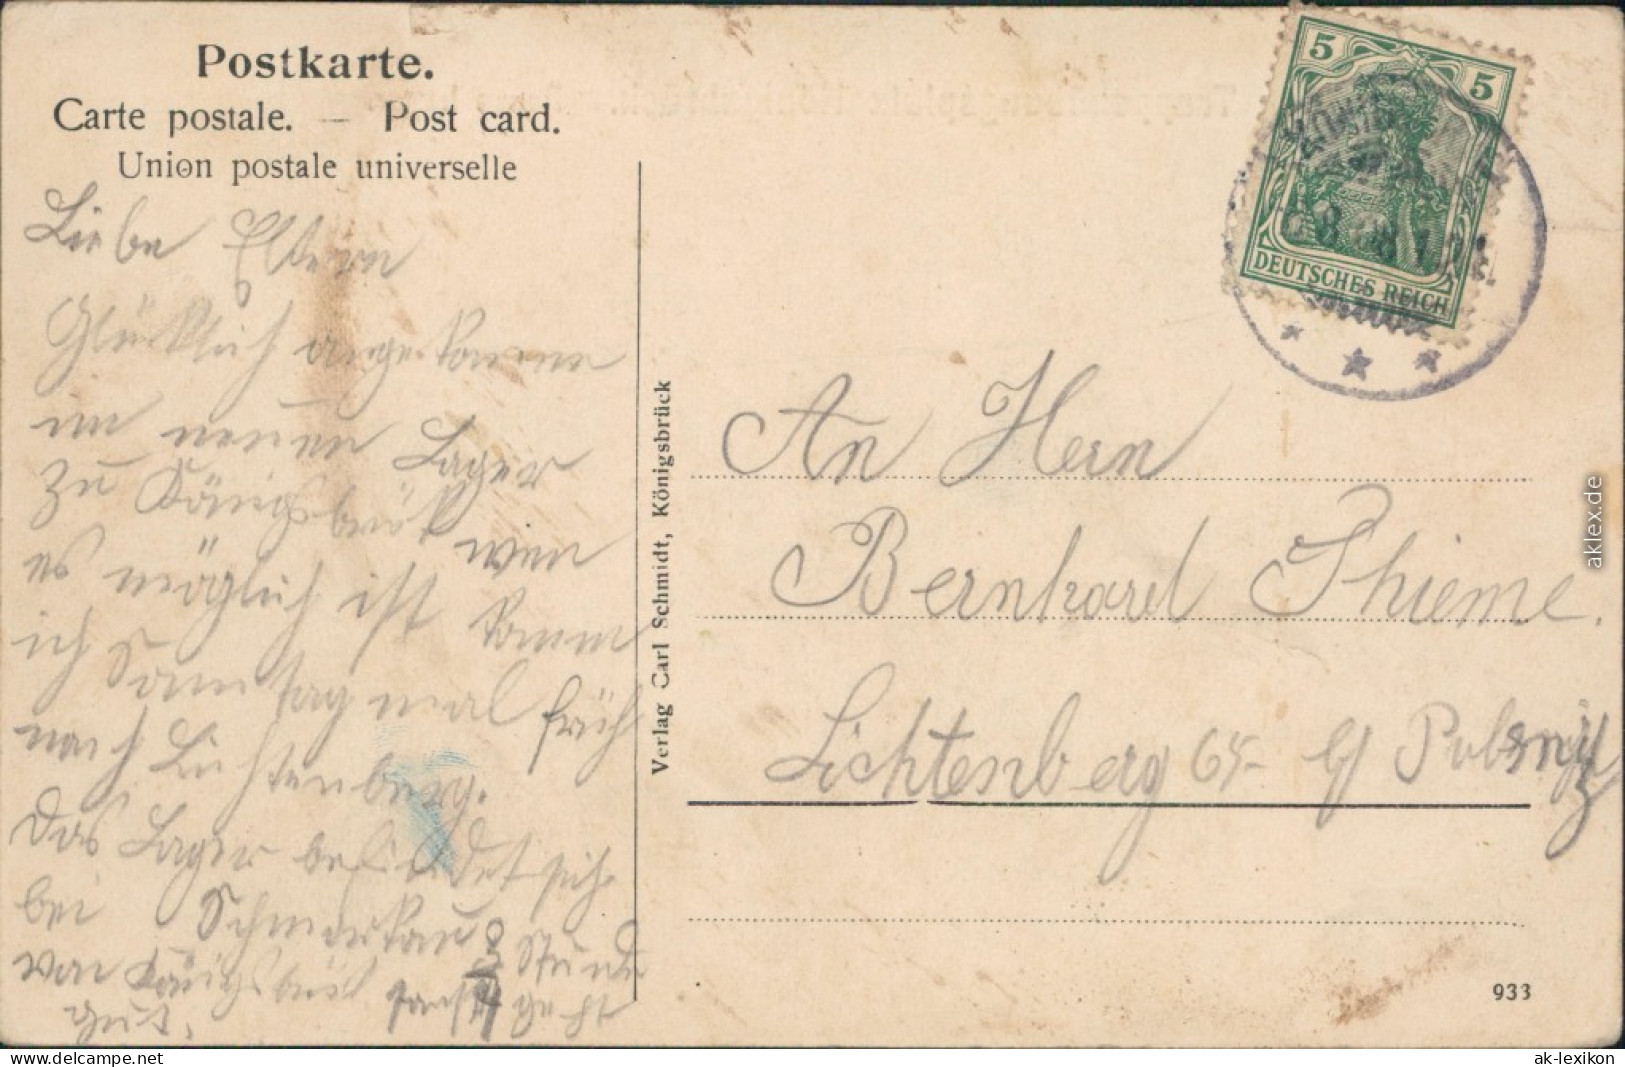 Postkarte.
Carte postale. — Post card.
Union postale universelle
Liebe Eltern
Glücklich angekommen
im neuen Lager
zu Königsbrück wen
es möglich ist komm
ich Sonntag mal früh
nach Lichtenberg.
Das Lager befindet sich
bei Schmorkau 3/4 Stunde
von Königsbrück sonst geht
gut.
Verlag Carl Schmidt, Königsbrück
5 5
DEUTSCHES REICH
An Hern
Bernhard Thieme.
Lichtenberg 65 b/ Pulsnitz
933
aklex.de
www.delcampe.net
ak-lexikon